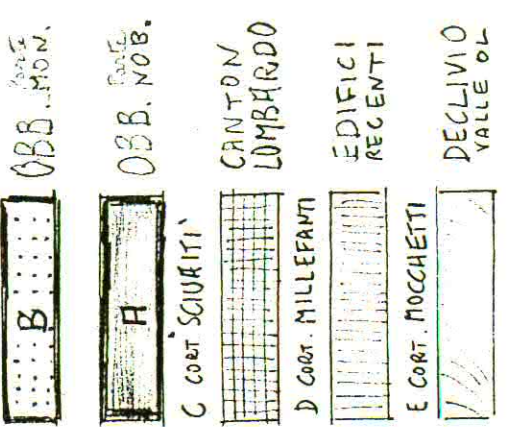 OBB. Parte MON.
B
OBB. Parte NOB.
A
C CORT. SCIURITI'
CANTON
LOMBARDO
D CORT. MILLEFANTI
EDIFICI
RECENTI
E CORT. MOCCHETTI
DECLIVIO
VALLE OL